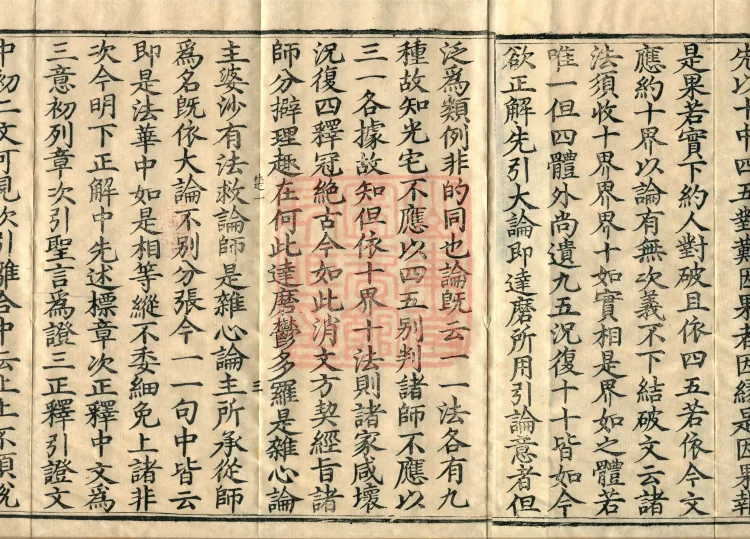 是果若實下約人對破且依四五若依今文
應約十界以論有無次義不下結破文云諸
法須收十界界界十如實相是界如之體若
唯一但四體外尚遺九五況復十十皆如今
欲正解先引大論即達磨所用引論意者但
泛爲類例非的同也論既云一一法各有九
種故知光宅不應以四五别判諸師不應以
三一各據故知但依十界十法則諸家咸壞
況復四釋冠絶古今如此消文方契經旨諸
師分擗理趣在何此達磨鬱多羅是雜心論
楚一
三
主婆沙有法救論師是雜心論主所承從師
爲名既依大論不别分張今一一句中皆云
即是法華中如是相等縱不委細免上諸非
次今明下正解中先述標章次正釋中文爲
三意初列章次引聖言爲證三正釋引證文